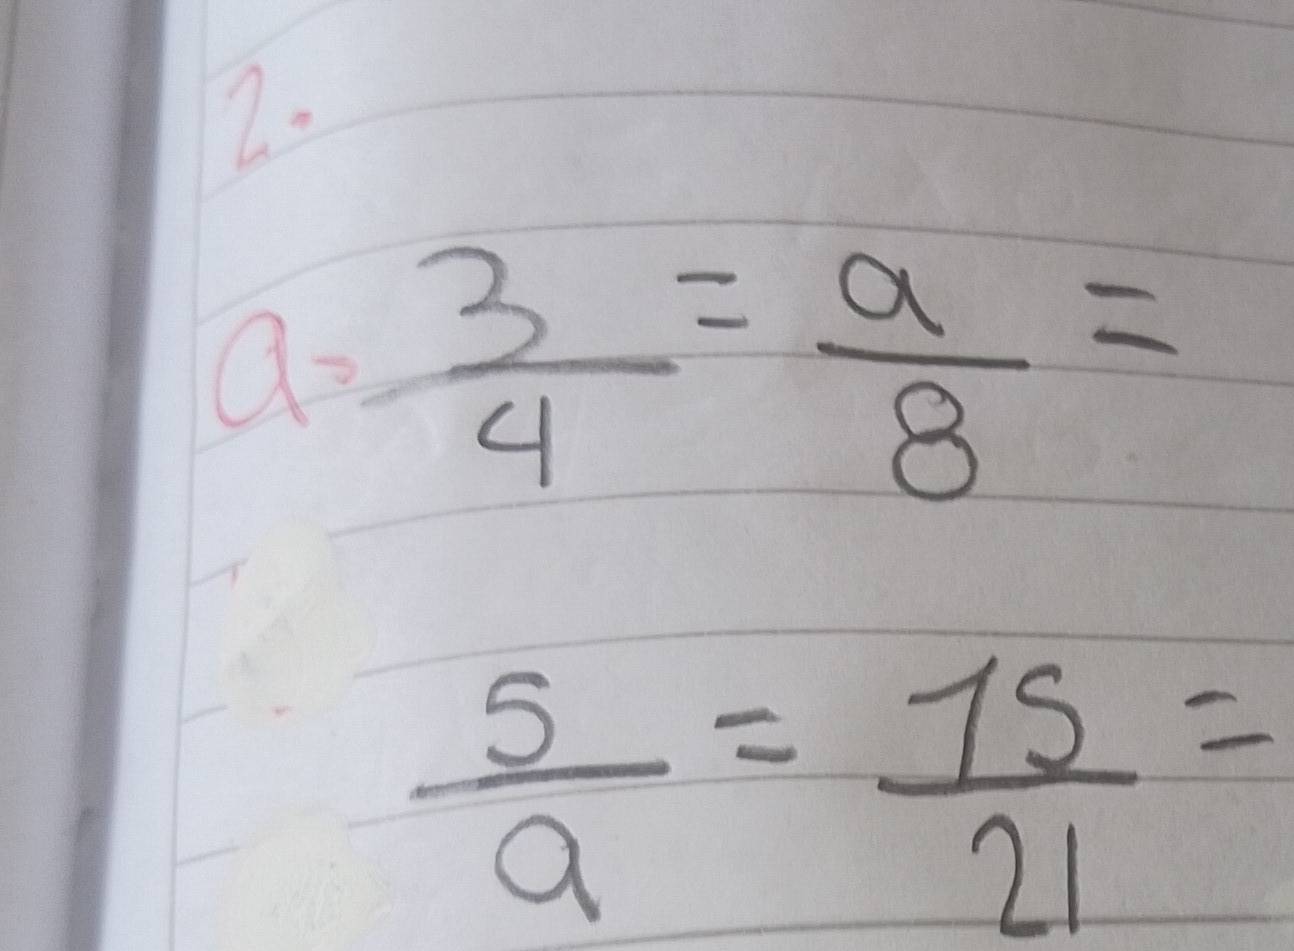 2.
a- 3/4 = a/8 =
5/a = 15/21 =